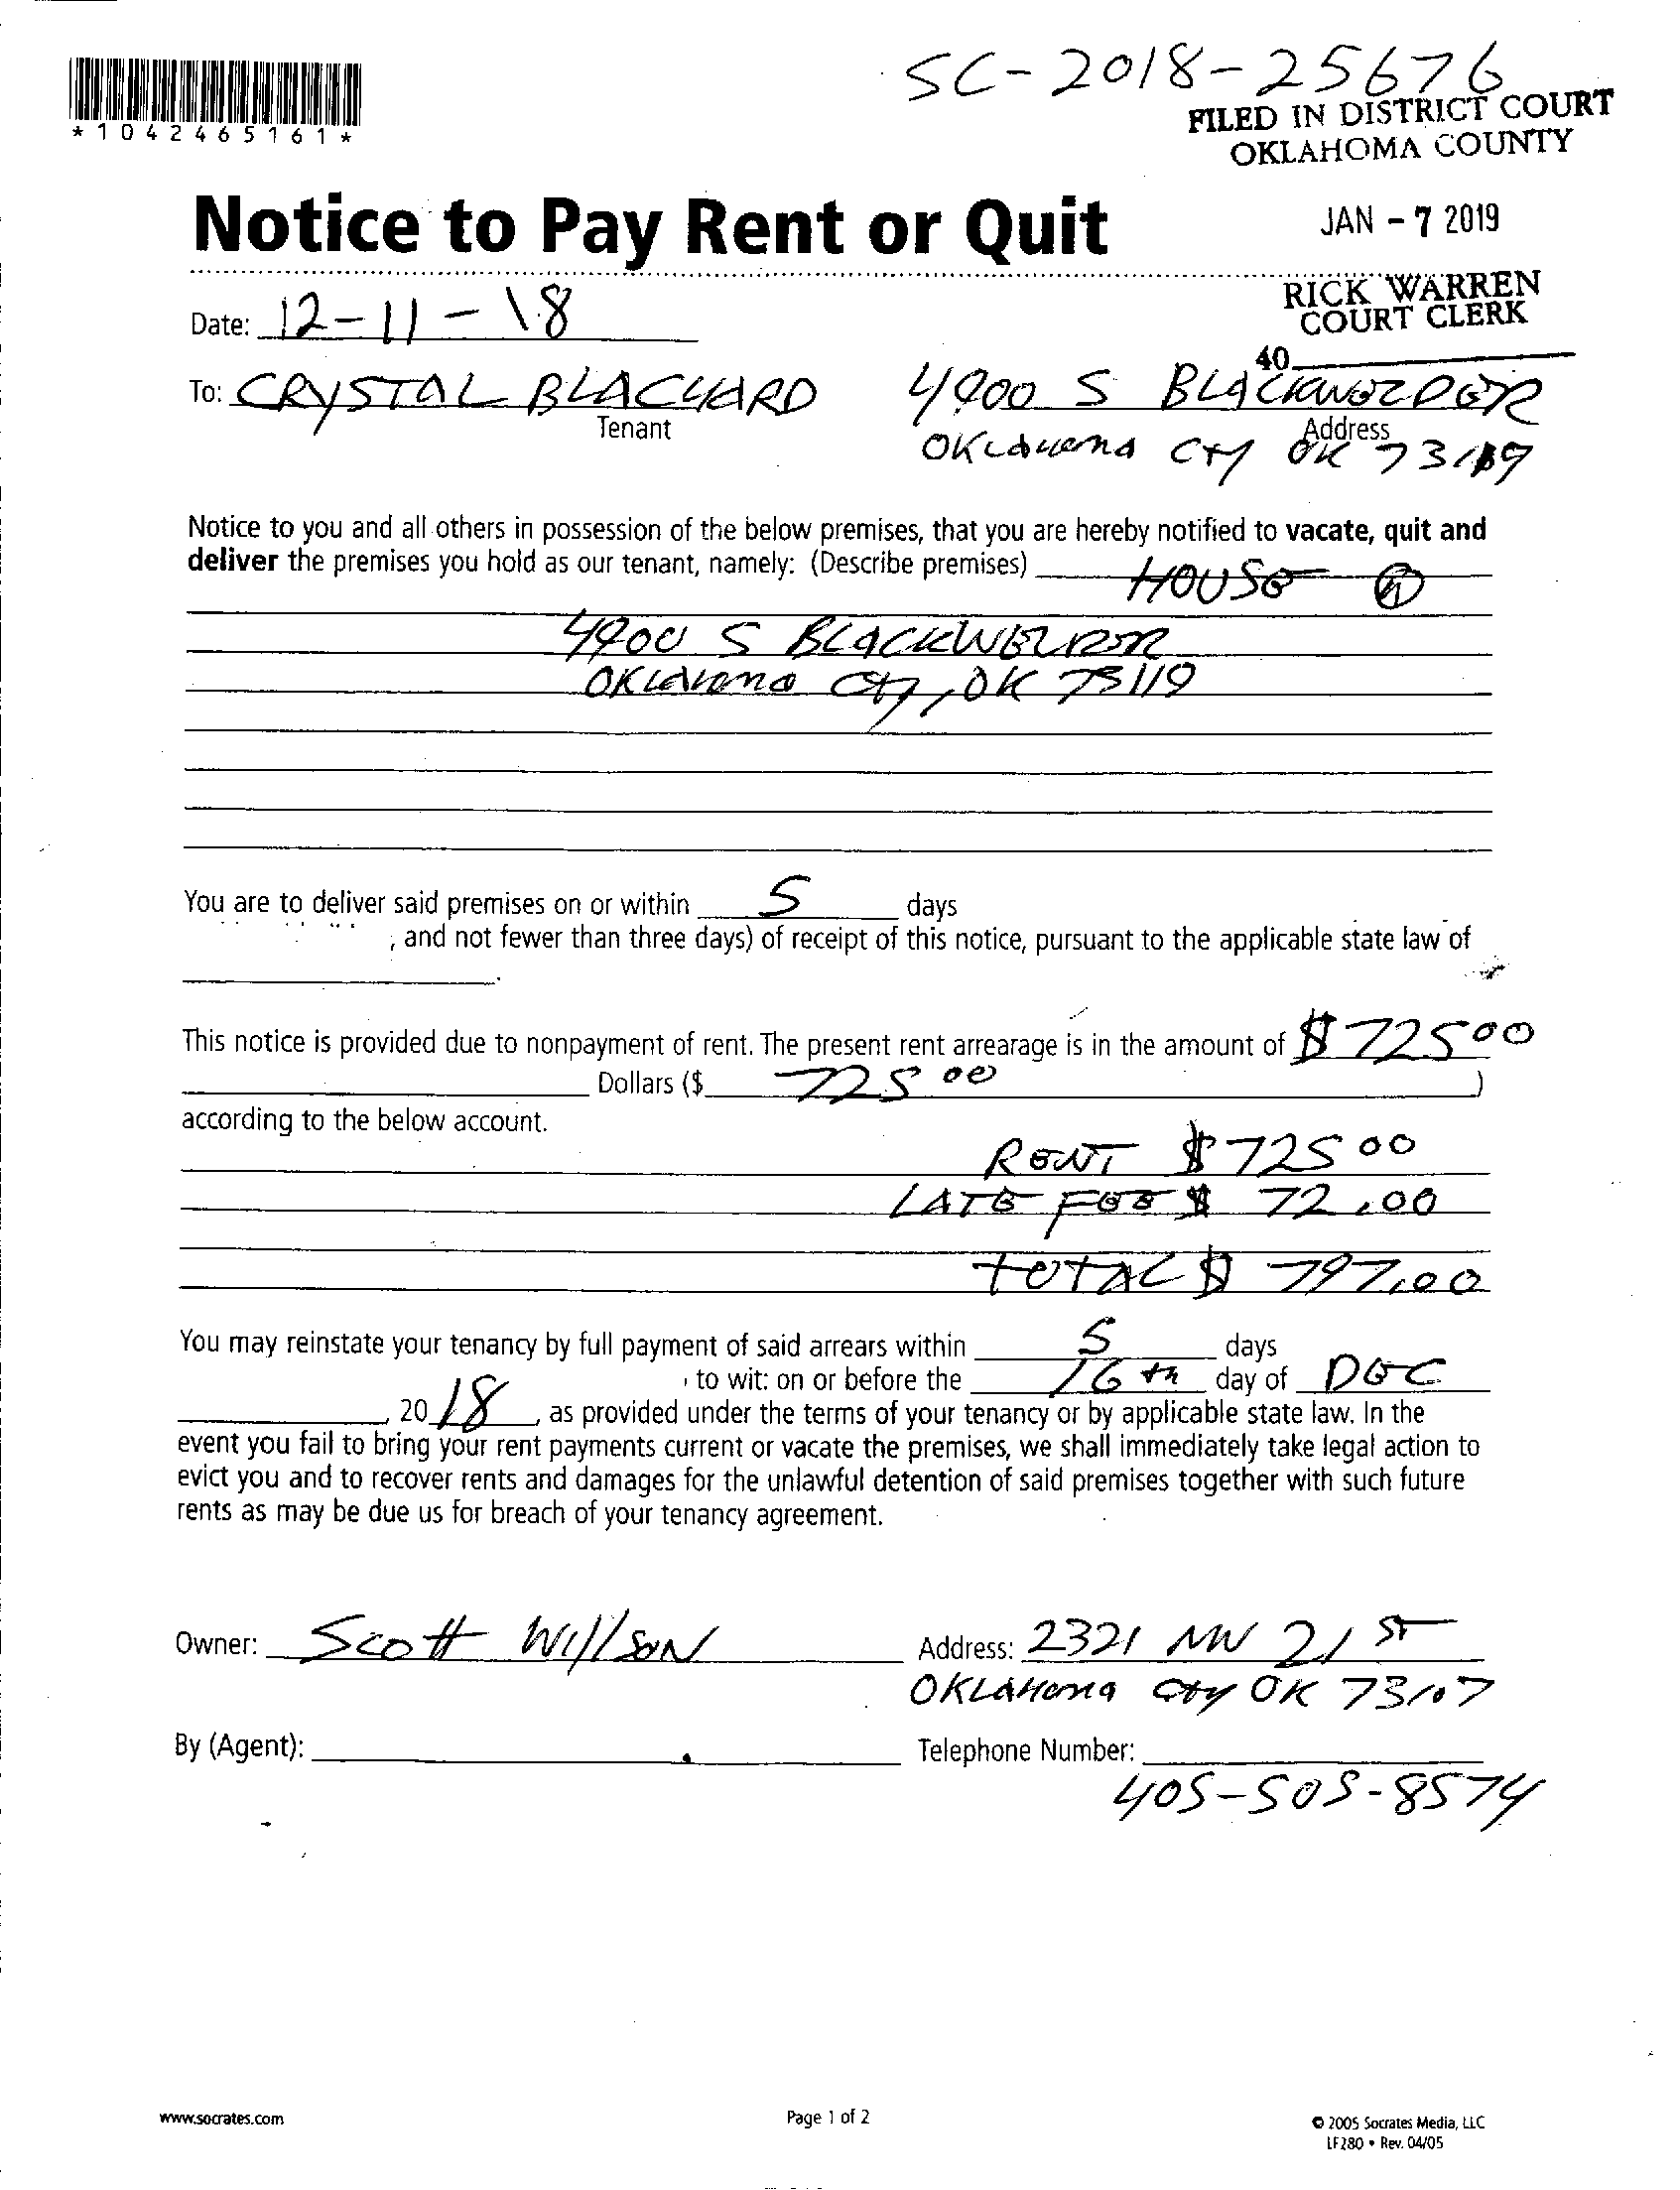 *1042465161*
SC-2018-25676
FILED IN DISTRICT COURT
OKLAHOMA COUNTY
Notice to Pay Rent or Quit
JAN - 7 2019
RICK WARREN
COURT CLERK
40
Date: 12-11-18
To: CRYSTAL BLACHARD 4900 S BLACKWELDER
Tenant Address
OKLAHOMA CTY OK 73119
Notice to you and all others in possession of the below premises, that you are hereby notified to vacate, quit and
deliver the premises you hold as our tenant, namely: (Describe premises) HOUSE @
4900 S BLACKWELDER
OKLAHOMA CTY, OK 73119
You are to deliver said premises on or within 5 days
, and not fewer than three days) of receipt of this notice, pursuant to the applicable state law of
.
This notice is provided due to nonpayment of rent. The present rent arrearage is in the amount of $ 725 00
Dollars ($ 725 00 )
according to the below account.
RENT $ 725 00
LATE FEE $ 72.00
TOTAL $ 797.00
You may reinstate your tenancy by full payment of said arrears within 5 days
, to wit: on or before the 16th day of DEC
, 2018, as provided under the terms of your tenancy or by applicable state law. In the
event you fail to bring your rent payments current or vacate the premises, we shall immediately take legal action to
evict you and to recover rents and damages for the unlawful detention of said premises together with such future
rents as may be due us for breach of your tenancy agreement.
Owner: Scott Willson Address: 2321 NW 21 ST
OKLAHOMA CTY OK 73107
By (Agent): Telephone Number:
405-505-8574
www.socrates.com Page 1 of 2 © 2005 Socrates Media, LLC
LF280 • Rev. 04/05